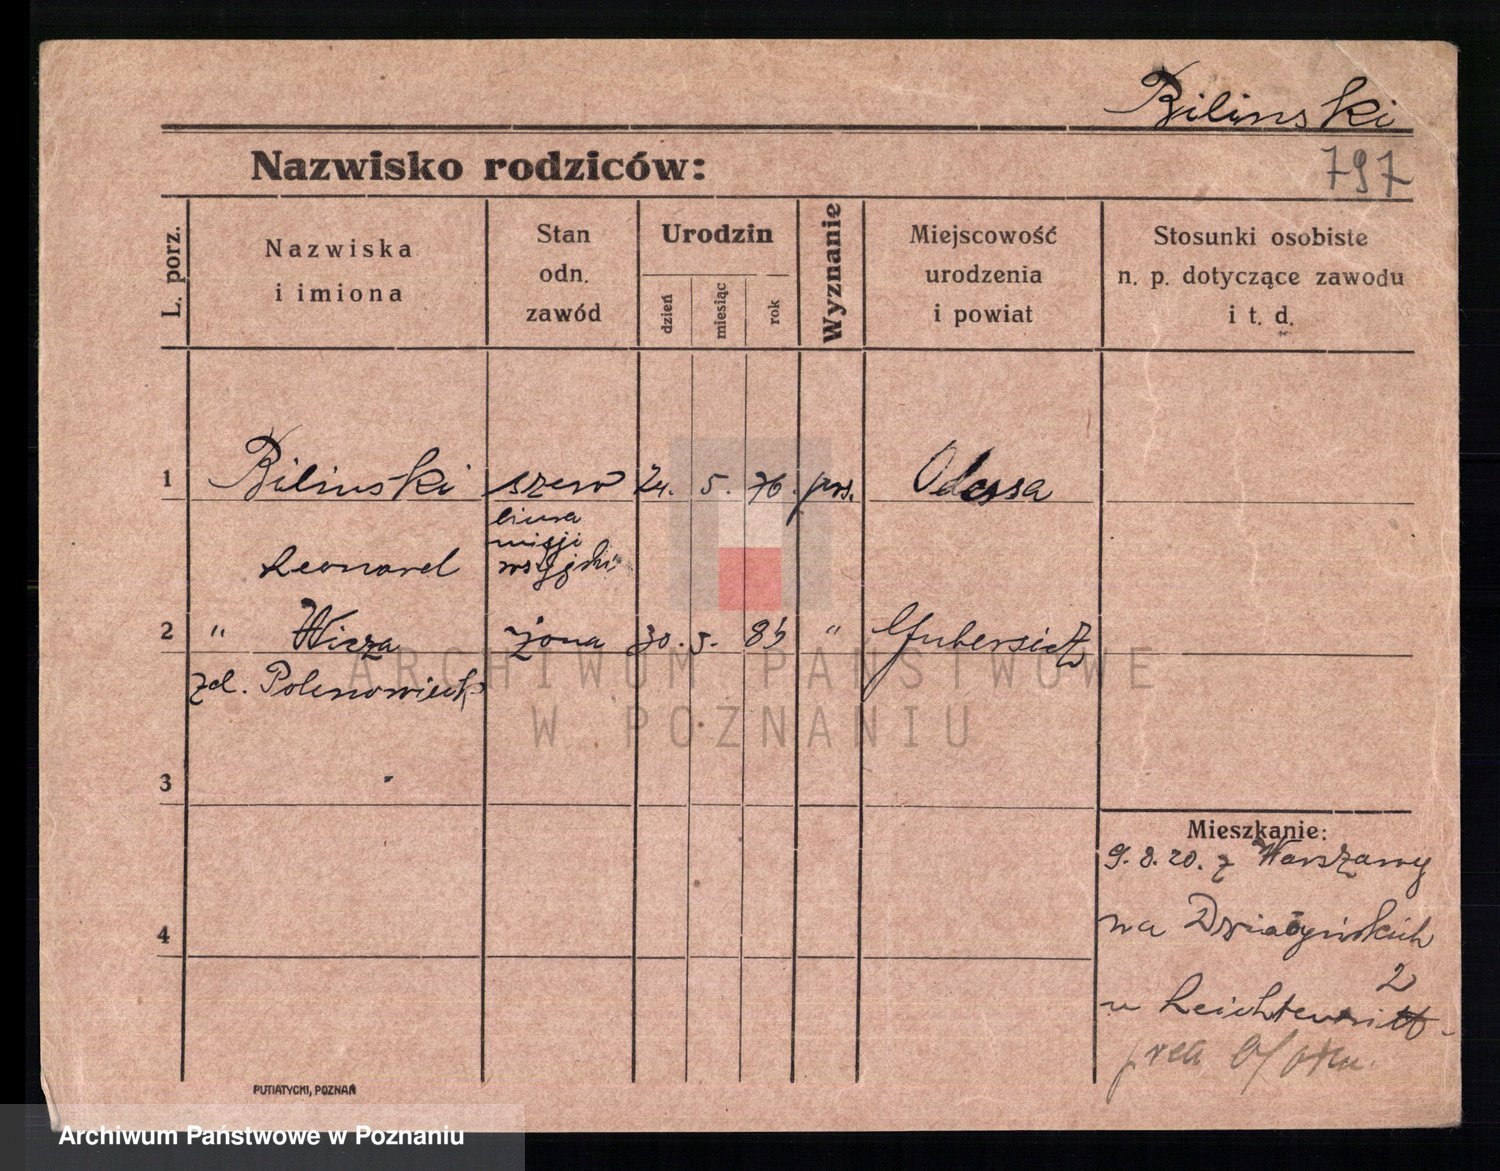 Bilinski
Nazwisko rodziców:
797
L. porz.
Nazwiska
i imiona
Stan
odn.
zawód
Urodzin
dzień
miesiąc
rok
Wyznanie
Miejscowość
urodzenia
i powiat
Stosunki osobiste
n. p. dotyczące zawodu
i t. d.
1 Bilinski szew 24. 5. 76. prs. Odessa
biura
misji
Leonard
2 " Wiera żona 30. 5. 85 "
zd.
3
Mieszkanie:
9. 8. 20. z Warszawy
4
na Działyńskich
2
u
PUTIATYCKI, POZNAŃ
ARCHIWUM PAŃSTWOWE
W POZNANIU
Archiwum Państwowe w Poznaniu